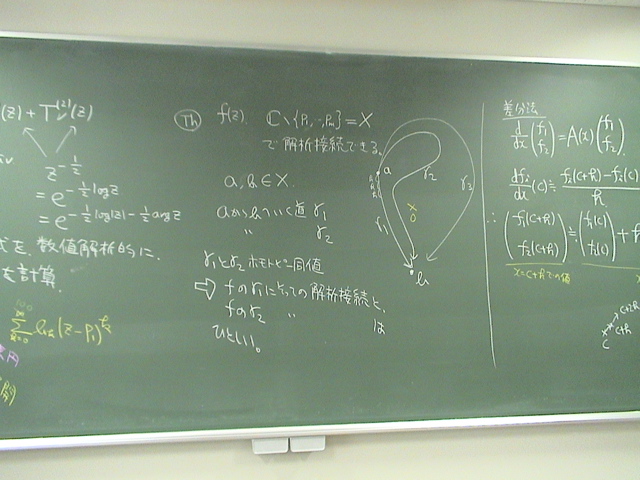 (z) + T^(2)_ν(z)
z^{-1/2}
= e^{-1/2 log z}
= e^{-1/2 log|z| - 1/2 arg z}
式を、数値解析的に、
を計算.
Σ (z-P₁)^k
Th f(z). ℂ\{P₁,…,Pₘ} = X
で解析接続できる.
a, b ∈ X.
aからbへいく道 γ₁
〃 γ₂
γ₁とγ₂ ホモトピー同値
⇨ fのγ₁にそっての解析接続と、
fのγ₂ 〃 は
ひとしい。
a
γ₂
γ₃
γ₁
×
0
b
差分法
d/dx (f₁ f₂) = A(x) (f₁ f₂)
df_i/dx (c) ≒ (f_i(c+h) - f_i(c))/h
∴ (f₁(c+h) f₂(c+h)) ≒ (f₁(c) f₂(c)) + h
x=c+hでの値
c+2h
c+h
c